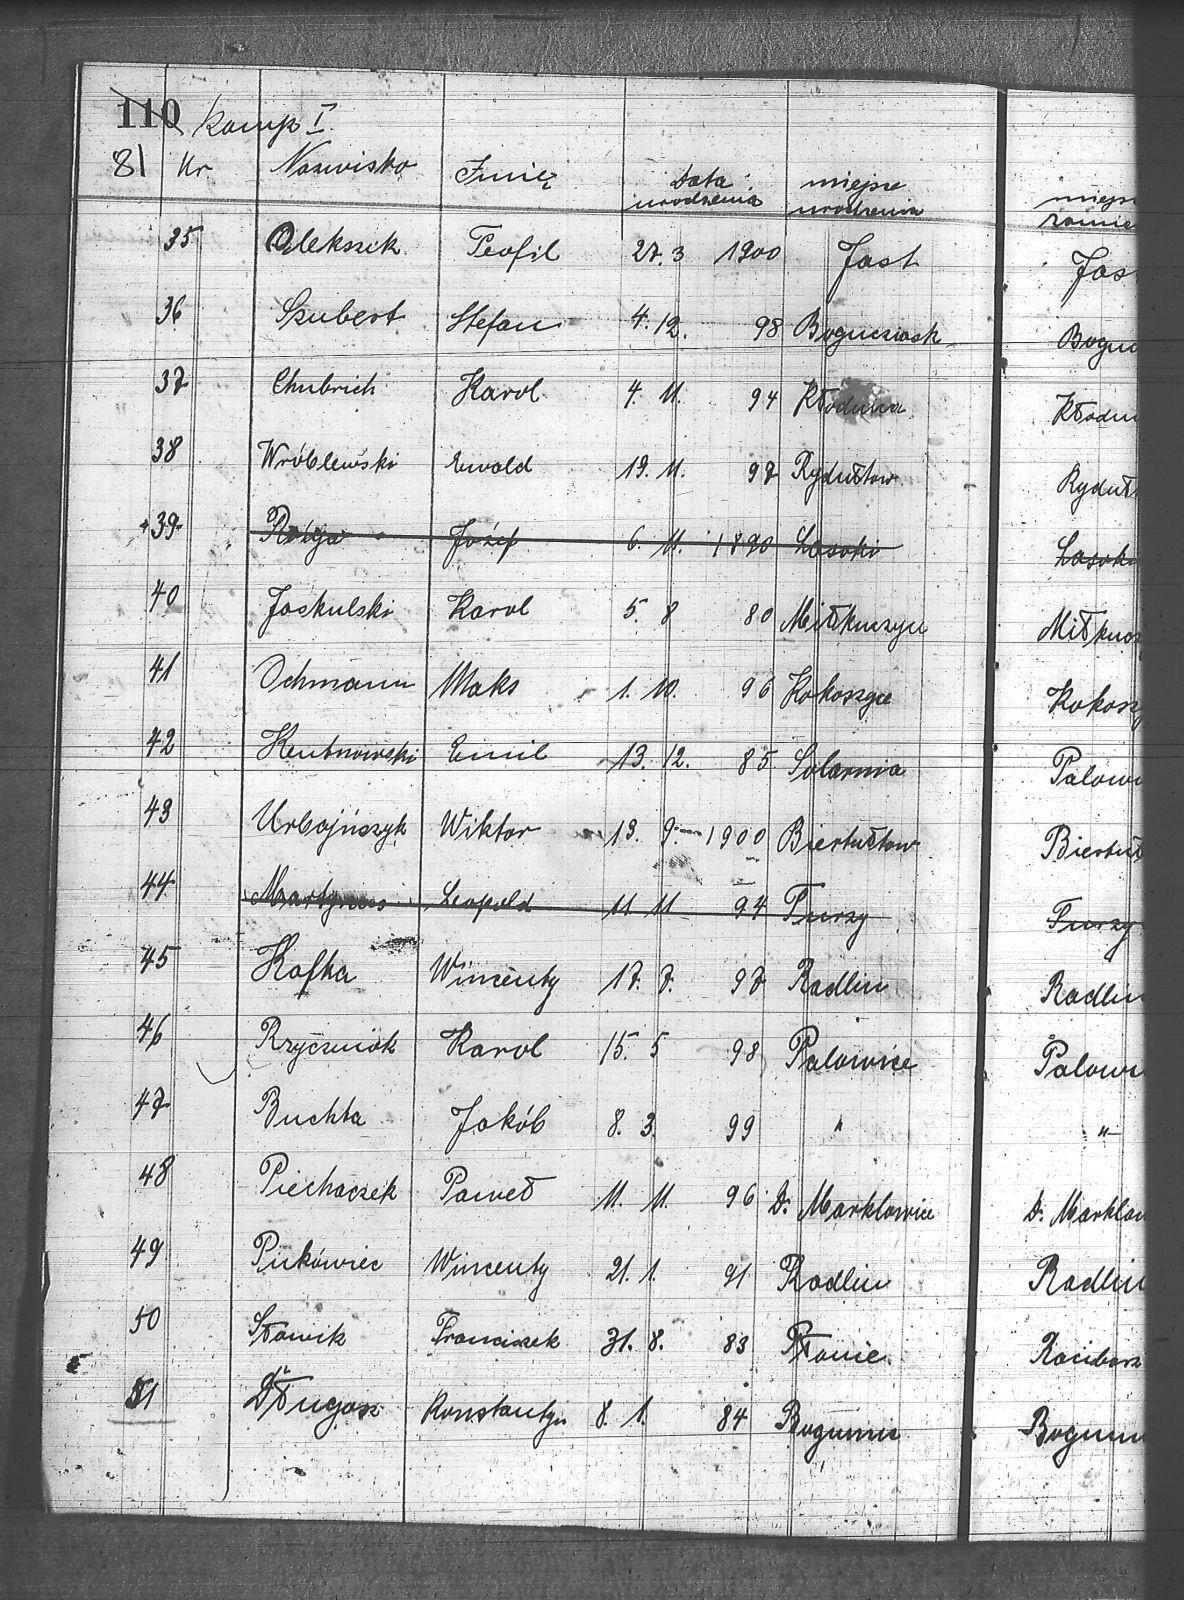 110 Komp I.
81 Nr Nazwisko Imię Data urodzenia miejsc urodzenia miejsc zamie
35 Olekszik Teofil 27. 3 1900 Jast Jas
36 Szubert Stefan 4. 12. 98
37 Chubrich Karol 4. 11. 94 Kłodnica Kłodni
38 Wróblewski Ewald 19. 11. 97 Rydułtow Rydułt
39 Józef 6. 11. 1890 Lasoki Lasok
40 Jaskulski Karol 5. 8 80
41 Ochmann Maks 1. 10. 96 Kokoszyce Kokoszy
42 Kutnowski Emil 13. 12. 85 Solarnia Palowi
43 Urbajńszyk Wiktor 19. 9. 1900 Biertułtow Biertuł
44 Leopold 11. 11 94 Turzy Turzy
45 Kafka Wincenty 17. 7. 97 Radlin Radlin
46 Rzyczniok Karol 15. 5 98 Palowice Palowi
47 Buchta Jakób 8. 3. 99 " "
48 Piechaczek Paweł 11. 11. 96 D. Marklowice D. Marklow
49 Pinkówiec Wincenty 21. 1. 91 Radlin Radlin
50 Sławik Franciszek 31. 8. 83 Płonie Raciborz
51 Długosz Konstantyn 8. 1. 84 Bogumin Bogumi